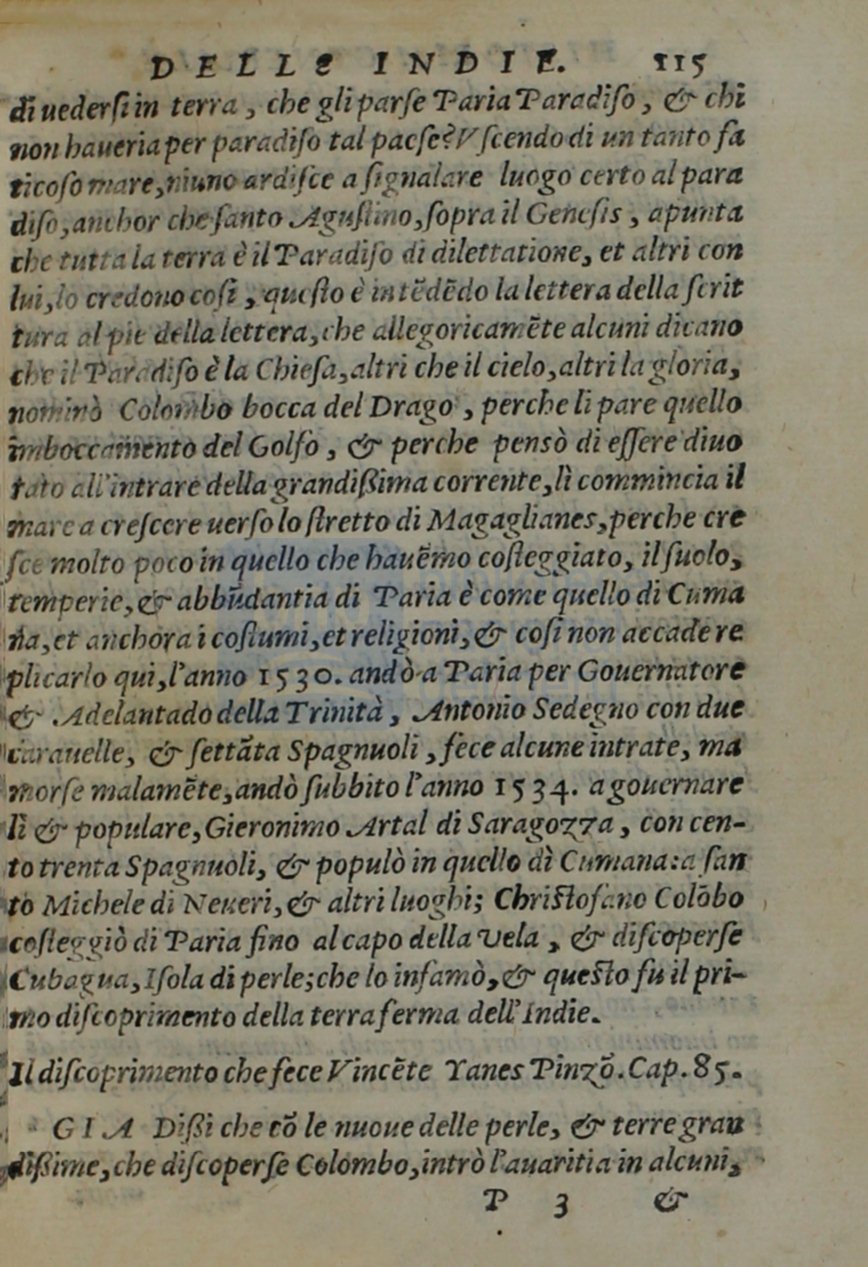 DELLE INDIE. 115
di uederſi in terra, che gli parſe Paria Paradiſo, & chi
non haueria per paradiſo tal paeſe? Vſcendo di un tanto fa
ticoſo mare, niuno ardiſce a ſignalare luogo certo al para
diſo, anchor che ſanto Aguſtino, ſopra il Geneſis, apunta
che tutta la terra è il Paradiſo di dilettatione, et altri con
lui, lo credono coſi, queſto è intẽdẽdo la lettera della ſcrit
tura al pie della lettera, che allegoricamẽte alcuni dicano
che il Paradiſo è la Chieſa, altri che il cielo, altri la gloria,
nominò Colombo bocca del Drago, perche li pare quello
imboccamento del Golfo, & perche pensò di eſſere diuo
tato all'intrare della grandißima corrente, lì commincia il
mare a creſcere uerſo lo ſtretto di Magaglianes, perche cre
ſce molto poco in quello che hauẽmo coſteggiato, il ſuolo,
temperie, & abbũdantia di Paria è come quello di Cuma
ña, et anchora i coſtumi, et religioni, & coſi non accade re
plicarlo qui, l'anno 1530. andò a Paria per Gouernatore
& Adelantado della Trinità, Antonio Sedegno con due
carauelle, & ſettãta Spagnuoli, fece alcune intrate, ma
morſe malamẽte, andò ſubbito l'anno 1534. a gouernare
lì & populare, Gieronimo Artal di Saragozza, con cen-
to trenta Spagnuoli, & populò in quello dì Cumana: a ſan
to Michele di Neueri, & altri luoghi; Chriſtofano Colõbo
coſteggiò di Paria fino al capo della Vela, & diſcoperſe
Cubagua, Iſola di perle; che lo infamò, & queſto fu il pri-
mo diſcoprimento della terra ferma dell'Indie.
Il diſcoprimento che fece Vincẽte Yanes Pinzõ. Cap. 85.
GIA Dißi che cõ le nuoue delle perle, & terre gran
dißime, che diſcoperſe Colombo, intrò l'auaritia in alcuni,
P 3 &